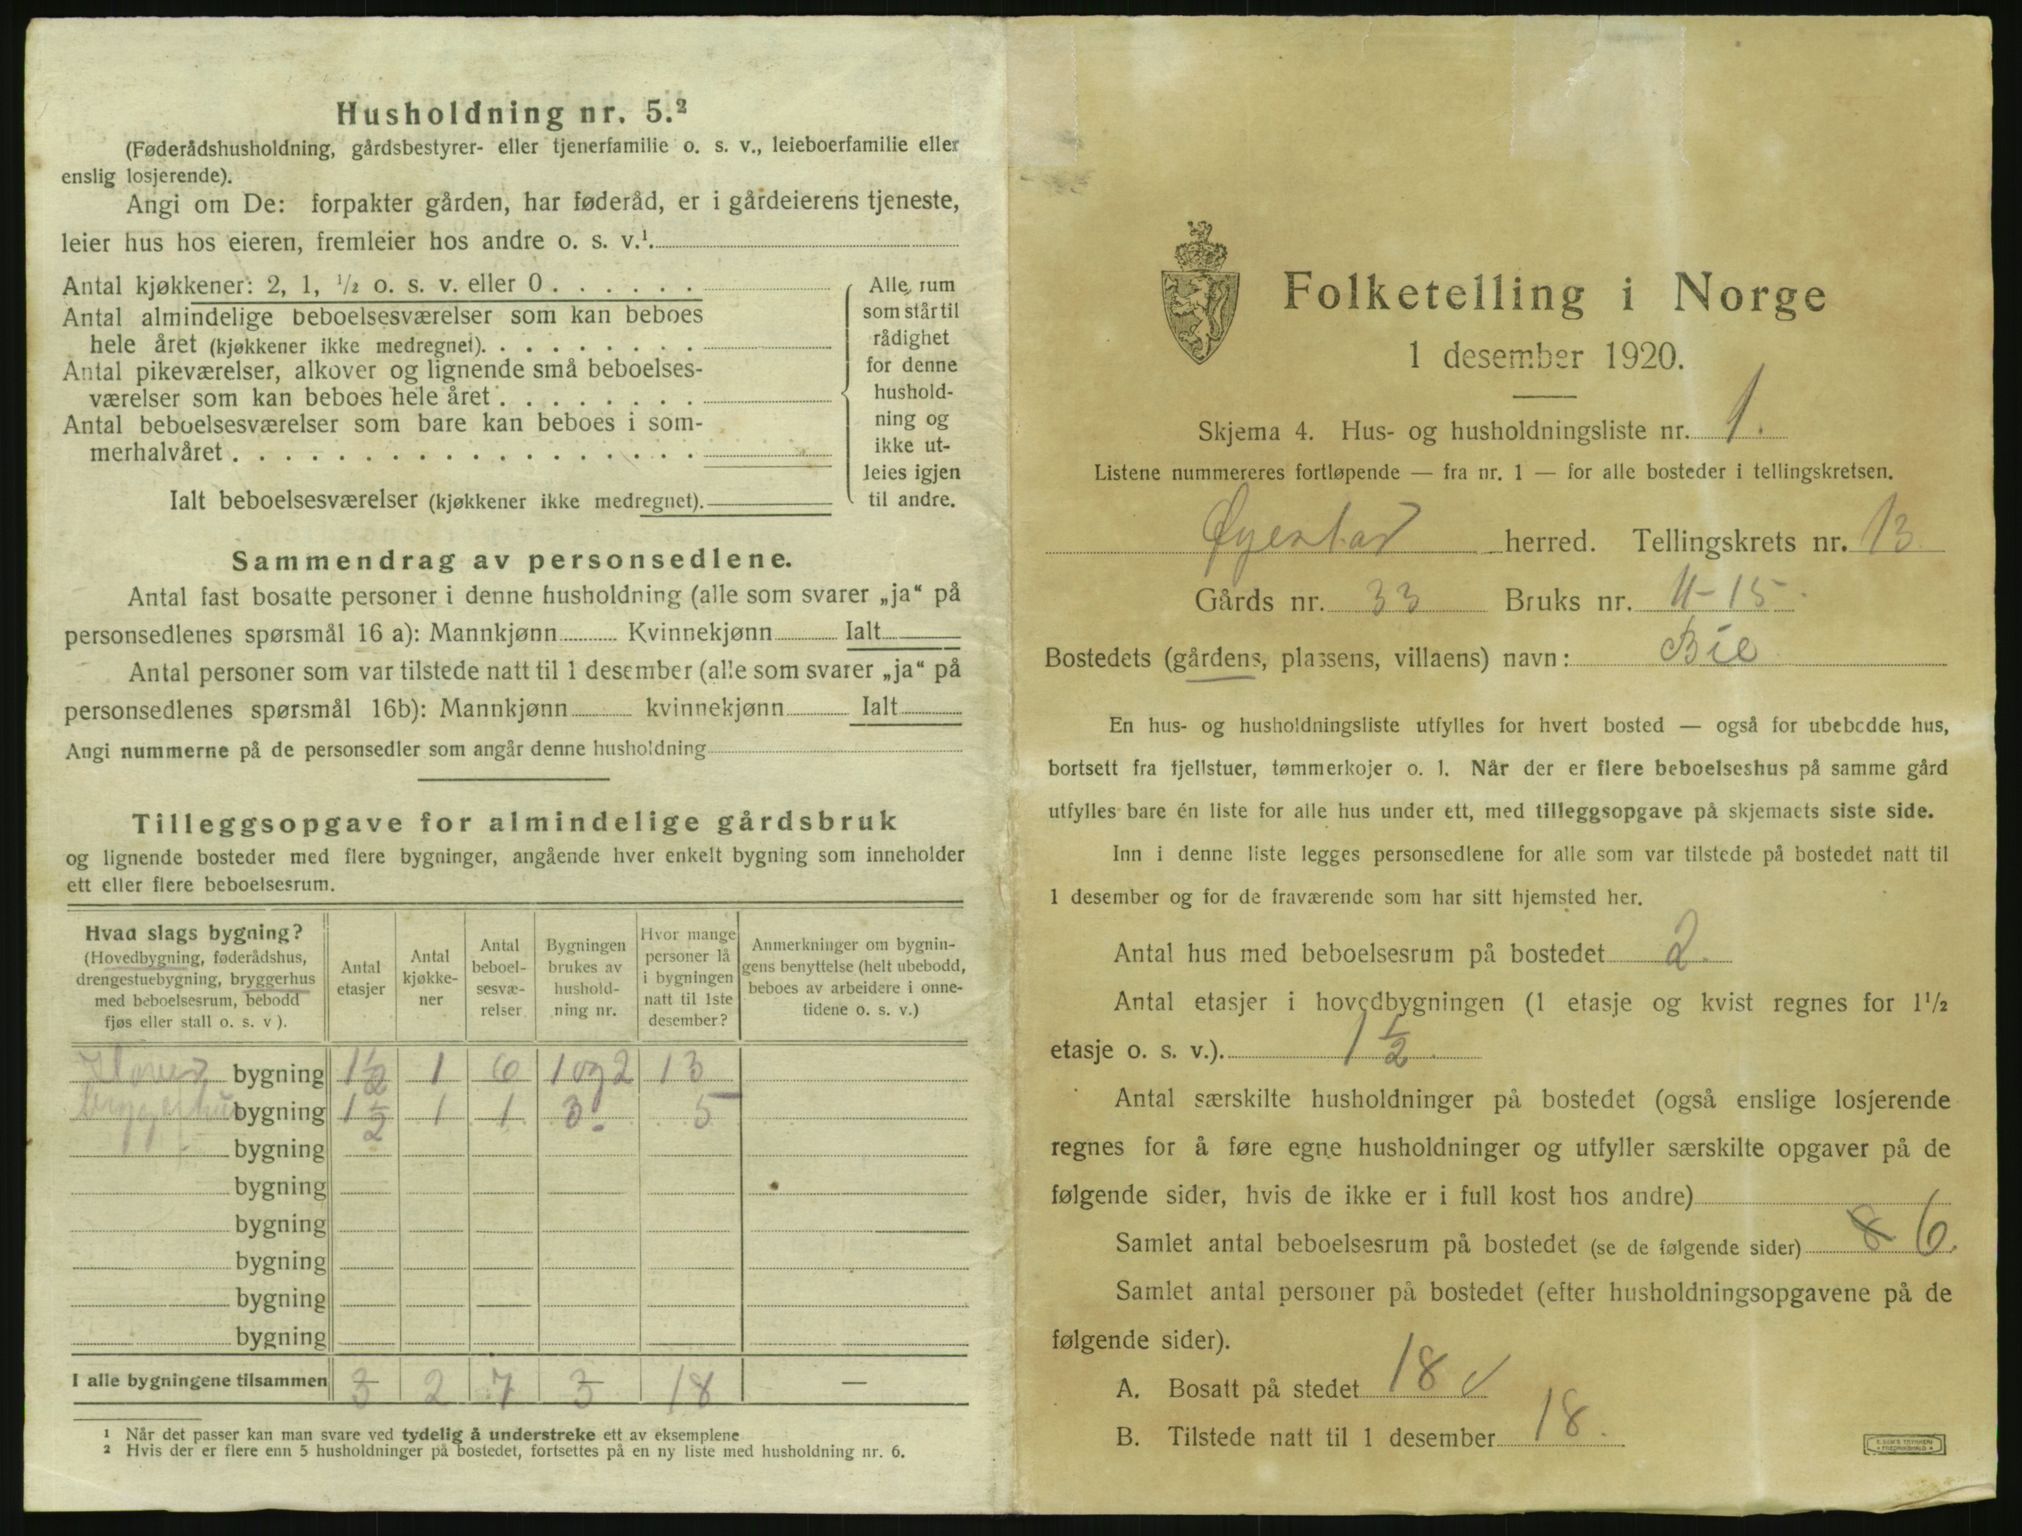 Husholdning nr. 5.²
(Føderådshusholdning, gårdsbestyrer- eller tjenerfamilie o. s. v., leieboerfamilie eller
enslig losjerende).
Angi om De: forpakter gården, har føderåd, er i gårdeierens tjeneste,
leier hus hos eieren, fremleier hos andre o. s. v.¹.
Antal kjøkkener: 2, 1, ½ o. s. v. eller 0
Antal almindelige beboelsesværelser som kan beboes
hele året (kjøkkener ikke medregnet).
Antal pikeværelser, alkover og lignende små beboelses-
værelser som kan beboes hele året
Antal beboelsesværelser som bare kan beboes i som-
merhalvåret
Ialt beboelsesværelser (kjøkkener ikke medregnet).
Alle rum
som står til
rådighet
for denne
hushold-
ning og
ikke ut-
leies igjen
til andre.
Sammendrag av personsedlene.
Antal fast bosatte personer i denne husholdning (alle som svarer „ja“ på
personsedlenes spørsmål 16 a): Mannkjønn Kvinnekjønn Ialt
Antal personer som var tilstede natt til 1 desember (alle som svarer „ja“ på
personsedlenes spørsmål 16b): Mannkjønn kvinnekjønn Ialt
Angi nummerne på de personsedler som angår denne husholdning
Tilleggsopgave for almindelige gårdsbruk
og lignende bosteder med flere bygninger, angående hver enkelt bygning som inneholder
ett eller flere beboelsesrum.
Hvad slags bygning?
(Hovedbygning, føderådshus,
drengestuebygning, bryggerhus
med beboelsesrum, bebodd
fjøs eller stall o. s. v ).
Antal
etasjer
Antal
kjøkke-
ner
Antal
beboel-
sesvæ-
relser
Bygningen
brukes av
hushold-
ning nr.
Hvor mange
personer lå
i bygningen
natt til 1ste
desember?
Anmerkninger om bygnin-
gens benyttelse (helt ubebodd,
beboes av arbeidere i onne-
tidene o. s. v.)
bygning 1½ 1 6 1 og 2 13
bryggerhus bygning 1½ 1 1 3. 5
bygning
bygning
bygning
bygning
bygning
bygning
I alle bygningene tilsammen 3 2 7 3 18 —
¹ Når det passer kan man svare ved tydelig å understreke ett av eksemplene
² Hvis der er flere enn 5 husholdninger på bostedet, fortsettes på en ny liste med husholdning nr. 6.
Folketelling i Norge
1 desember 1920.
Skjema 4. Hus- og husholdningsliste nr. 1.
Listene nummereres fortløpende — fra nr. 1 — for alle bosteder i tellingskretsen.
Øyestad herred. Tellingskrets nr. 13.
Gårds nr. 33 Bruks nr. 11-15.
Bostedets (gårdens, plassens, villaens) navn: Bie
En hus- og husholdningsliste utfylles for hvert bosted — også for ubebodde hus,
bortsett fra fjellstuer, tømmerkojer o. l. Når der er flere beboelseshus på samme gård
utfylles bare én liste for alle hus under ett, med tilleggsopgave på skjemaets siste side.
Inn i denne liste legges personsedlene for alle som var tilstede på bostedet natt til
1 desember og for de fraværende som har sitt hjemsted her.
Antal hus med beboelsesrum på bostedet 2.
Antal etasjer i hovedbygningen (1 etasje og kvist regnes for 1½
etasje o. s. v.). 1½
Antal særskilte husholdninger på bostedet (også enslige losjerende
regnes for å føre egne husholdninger og utfyller særskilte opgaver på de
følgende sider, hvis de ikke er i full kost hos andre)
Samlet antal beboelsesrum på bostedet (se de følgende sider) 8 6.
Samlet antal personer på bostedet (efter husholdningsopgavene på de
følgende sider).
A. Bosatt på stedet 18 ✓
B. Tilstede natt til 1 desember 18.